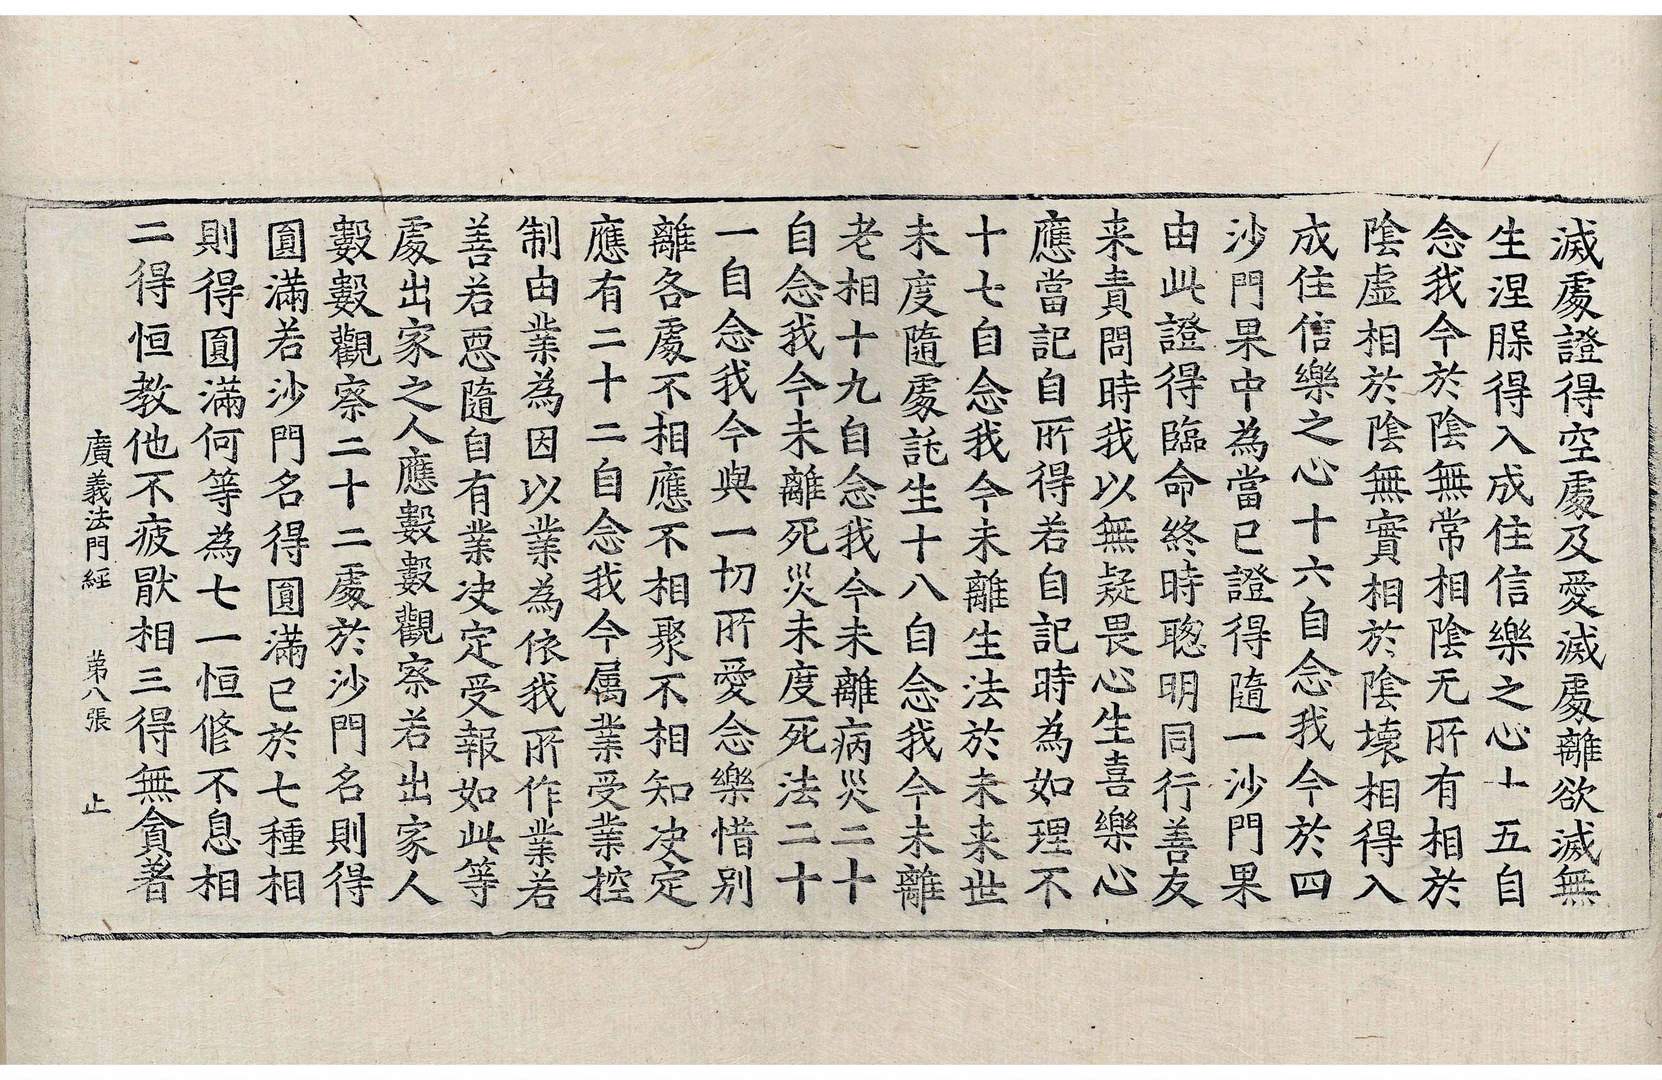 滅處證得空處及愛滅處離欲滅無
生涅槃得入成住信樂之心十五自
念我今於陰無常相陰无所有相於
陰虛相於陰無實相於陰壞相得入
成住信樂之心十六自念我今於四
沙門果中為當已證得隨一沙門果
由此證得臨命終時聦明同行善友
来責問時我以無疑畏心生喜樂心
應當記自所得若自記時為如理不
十七自念我今未離生法於未来世
未度隨處託生十八自念我今未離
老相十九自念我今未離病災二十
自念我今未離死災未度死法二十
一自念我今與一切所愛念樂惜別
離各處不相應不相聚不相知决定
應有二十二自念我今属業受業控
制由業為因以業為依我所作業若
善若惡隨自有業决定受報如此等
處出家之人應數數觀察若出家人
數數觀察二十二處於沙門名則得
圓滿若沙門名得圓滿已於七種相
則得圓滿何等為七一恒修不息相
二得恒教他不疲猒相三得無貪著
廣義法門經 第八張 止